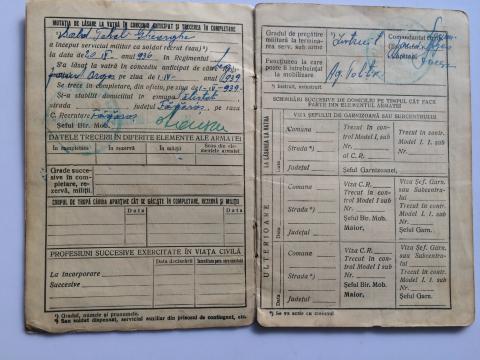 MUTAȚIA DE LĂSARE LA VATRĂ ÎN CONCEDIU ANTICIPAT ȘI TRECEREA ÎN COMPLETARE
Gheorghe
a început serviciul militar ca soldat recrut (sau)*)
la data de 20.IV. 1936 în Regimentul
S'a lăsat la vatră în concediu anticipat de
pe ziua de 1.IV- 1939
Se trece în completare, din oficiu, pe ziua de 1-IV-939.
Și-a stabilit domiciliul în comuna
strada județul Făgăraș, pe raza
C. Recrutare Făgăraș
Șeful Bir. Mob.
DATELE TRECERII ÎN DIFERITE ELEMENTE ALE ARMATEI
În completare
în rezervă
în miliții
Scos din elementele armatei
Grade succesive în completare, rezervă, miliții.
CORPUL DE TRUPĂ CĂRUIA APARȚINE CÂT SE GĂSEȘTE ÎN COMPLETARE, REZERVĂ ȘI MILIȚII
Data
Data
PROFESIUNI SUCCESIVE EXERCITATE ÎN VIAȚA CIVILĂ
Data declarării
La încorporare
Succesive
*) Gradul, numele și pronumele.
*) Sau soldat dispensat, serviciul auxiliar din prisosul de contingent, etc.
Gradul de pregătire militară la terminarea serv. sub arme
Instruit
Comandantul
Căpitan,
Funcțiunea la care poate fi întrebuințat la mobilizare
Ag.
*) Instruit, neinstruit
SCHIMBĂRI SUCCESIVE DE DOMICILIU PE TIMPUL CÂT FACE PARTE DIN ELEMENTELE ARMATEI
VIZA ȘEFULUI DE GARNIZOANĂ SAU SUBCENTRULUI
LA LĂSAREA LA VATRĂ
Data
Comuna
Strada*)
Județul
Trecut în control Model I. sub Nr.
al C.R.
Șeful Garnizoanei,
Trecut în contr. Model I. I. sub Nr.
ULTERIOARE
Data
Comuna
Strada*)
Județul
Viza C.R.
Trecut în control Model I. sub Nr.
Șeful Bir. Mob.
Maior,
Viza Șef. Garn. sau Subcentrului
Trecut în control Model I. I. sub Nr.
Șeful Garn.
Data
Comune
Strada*)
Județul
Viza C.R.
Trecut în control Model I. sub Nr.
Șeful Bir. Mob.
Maior,
Viza Șef. Garn. sau Subcentrului
Trecut în control Model I. I. sub Nr.
Șeful Garn.
*) Se va scrie cu creionul